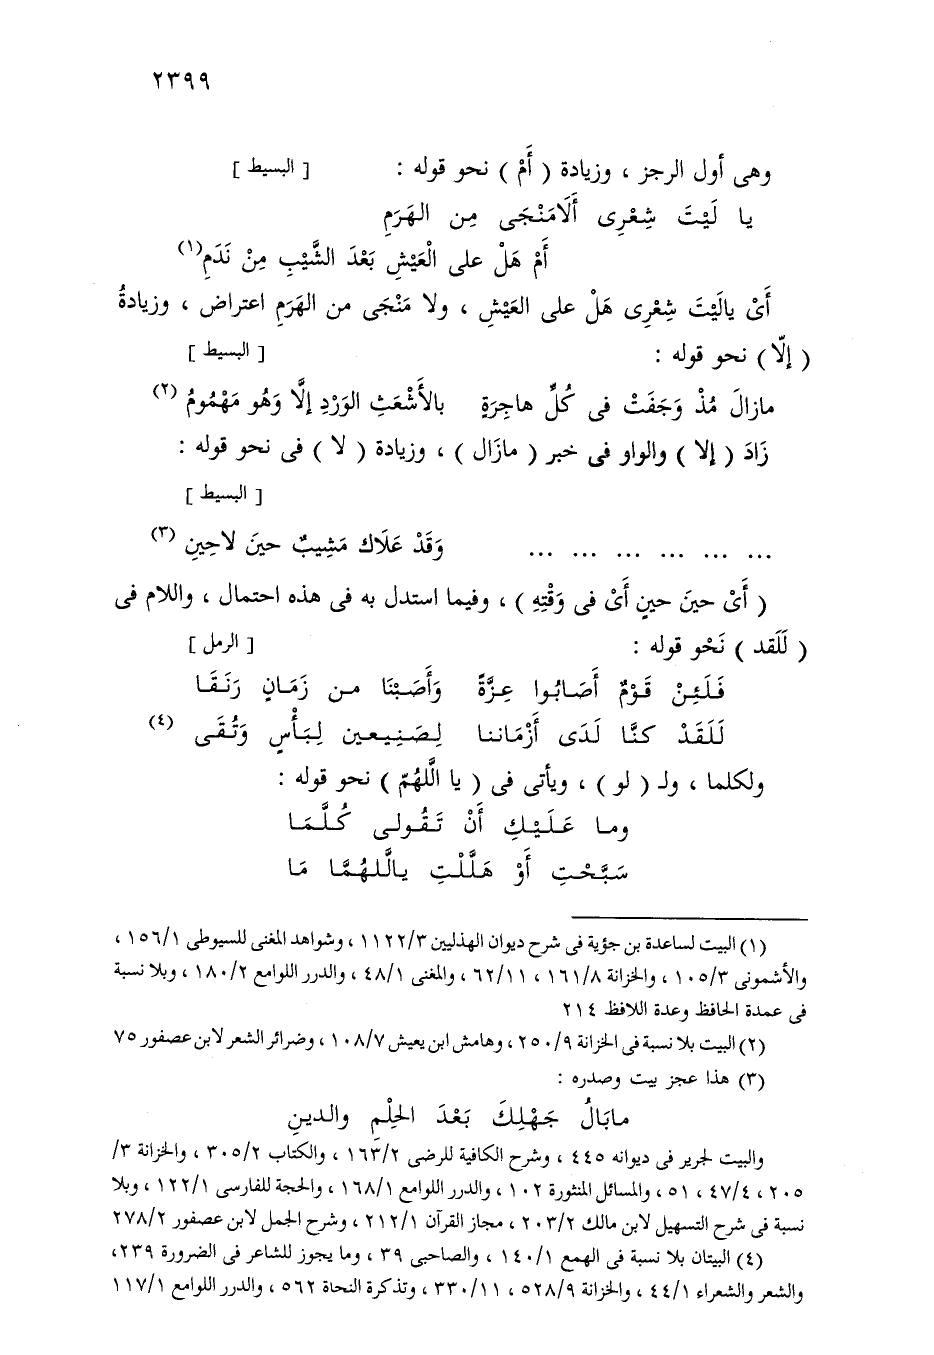 ٢٣٩٩
وهى أول الرجز ، وزيادة ( أَمْ ) نحو قوله : [ البسيط ]
يا لَيْتَ شِعْرِى أَلَامَنْجَى مِن الهَرَمِ
أَمْ هَلْ على الْعَيْشِ بَعْدَ الشَّيْبِ مِنْ نَدَمِ (١)
أَىْ يالَيْتَ شِعْرِى هَلْ على العَيْشِ ، ولا مَنْجَى من الهَرَمِ اعتراض ، وزيادةُ
( إلّا ) نحو قوله : [ البسيط ]
مازالَ مُذْ وَجَفَتْ فى كُلِّ هاجِرَةٍ بالأَشْعَثِ الوَرْدِ إلَّا وَهُو مَهْمُومُ (٢)
زَادَ ( إلا ) والواو فى خبر ( مازَال ) ، وزيادة ( لا ) فى نحو قوله :
[ البسيط ]
... ... ... ... ... ... وَقَدْ عَلَاك مَشِيبٌ حينَ لاحِينِ (٣)
( أَىْ حينَ حينٍ أَىْ فى وَقْتِهِ ) ، وفيما استدل به فى هذه احتمال ، واللام فى
( لَلَقد ) نَحْو قوله : [ الرمل ]
فَلَئِنْ قَوْمٌ أَصَابُوا عِزَّةً وَأَصَبْنَا من زَمَانٍ رَنَقَا
لَلَقَدْ كنَّا لَدَى أَزْماننا لِصَنِيعين لِبَأْسٍ وَتُقَى (٤)
ولكلما ، ولـ ( لو ) ، ويأتى فى ( يا الَّلهُمّ ) نحو قوله :
وما عَلَيْكِ أَنْ تَقُولى كُلَّمَا
سَبَّحْتِ أَوْ هَلَّلْتِ يالَّلهُمَّا مَا
(١) البيت لساعدة بن جؤية فى شرح ديوان الهذليين ١١٢٢/٣ ، وشواهد المغنى للسيوطى ١٥٦/١ ،
والأشمونى ١٠٥/٣ ، والخزانة ١٦١/٨ ، ٦٢/١١ ، والمغنى ٤٨/١ ، والدرر اللوامع ١٨٠/٢ ، وبلا نسبة
فى عمدة الحافظ وعدة اللافظ ٢١٤
(٢) البيت بلا نسبة فى الخزانة ٢٥٠/٩ ، وهامش ابن يعيش ١٠٨/٧ ، وضرائر الشعر لابن عصفور ٧٥
(٣) هذا عجز بيت وصدره :
مابَالُ جَهْلِكَ بَعْدَ الحِلْمِ والدينِ
والبيت لجرير فى ديوانه ٤٤٥ ، وشرح الكافية للرضى ١٦٣/٢ ، والكتاب ٣٠٥/٢ ، والخزانة ٣/
٢٠٥ ، ٤٧/٤ ، ٥١ ، والمسائل المنثورة ١٠٢ ، والدرر اللوامع ١٦٨/١ ، والحجة للفارسى ١٢٢/١ ، وبلا
نسبة فى شرح التسهيل لابن مالك ٢٠٣/٢ ، مجاز القرآن ٢١٢/١ ، وشرح الجمل لابن عصفور ٢٧٨/٢
(٤) البيتان بلا نسبة فى الهمع ١٤٠/١ ، والصاحبى ٣٩ ، وما يجوز للشاعر فى الضرورة ٢٣٩ ،
والشعر والشعراء ٤٤/١ ، والخزانة ٥٢٨/٩ ، ٣٣٠/١١ ، وتذكرة النحاة ٥٦٢ ، والدرر اللوامع ١١٧/١